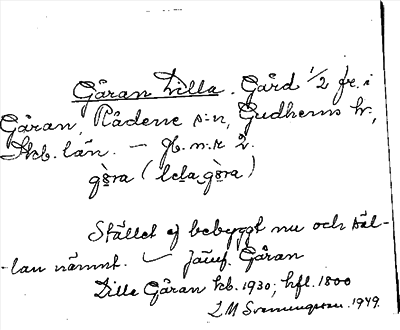 Gåran Lilla. Gård 1/2 fr. i
Gåran, Rådene s:n, Gudhems hr.,
Skb. län. — Jb. n:r 2.
gòra (leta gòra)
Stället ej bebyggt nu och säl-
-lan nämnt. — Jämf. Gåran
Lille Gåran kb. 1930; hfl. 1800
L M Svennungsson. 1949.